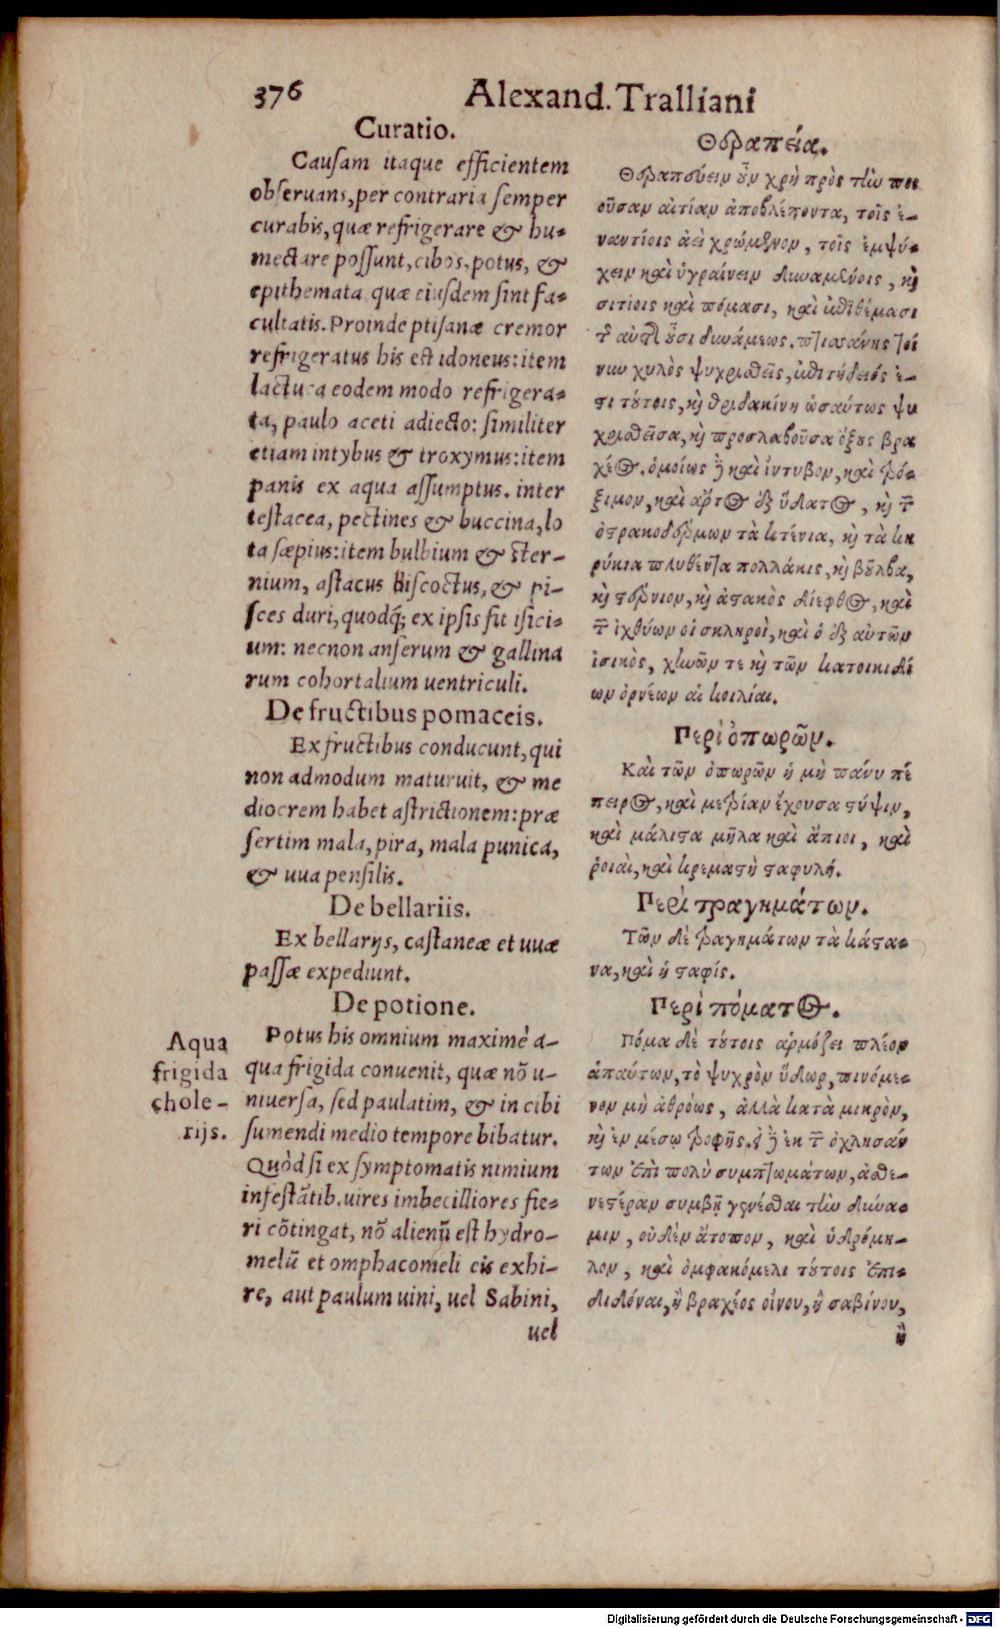 376 Alexand. Tralliani
Curatio.
Cauſam itaque efficientem
obſeruans, per contraria ſemper
curabis, quæ refrigerare & hu-
mectare poſſunt, cibos, potus, &
epithemata quæ eiuſdem ſint fa-
cultatis. Proinde ptiſanæ cremor
refrigeratus his eſt idoneus: item
lactuca eodem modo refrigera-
ta, paulo aceti adiecto: ſimiliter
etiam intybus & troxymus: item
panis ex aqua aſſumptus. inter
teſtacea, pectines & buccina, lo
ta ſæpius: item bulbium & ſter-
nium, aſtacus biſcoctus, & pi-
ſces duri, quodq; ex ipſis fit iſici-
um: necnon anſerum & gallina
rum cohortalium uentriculi.
De fructibus pomaceis.
Ex fructibus conducunt, qui
non admodum maturuit, & me
diocrem habet aſtrictionem: præ
ſertim mala, pira, mala punica,
& uua penſilis.
De bellariis.
Ex bellarijs, caſtaneæ et uuæ
paſſæ expediunt.
De potione.
Potus his omnium maximè a-
qua frigida conuenit, quæ nō u-
niuerſa, ſed paulatim, & in cibi
ſumendi medio tempore bibatur.
Quòd ſi ex ſymptomatis nimium
infeſtātib. uires imbecilliores fie-
ri cōtingat, nō alienū eſt hydro-
melū et omphacomeli eis exhi-
re, aut paulum uini, uel Sabini,
uel
Aqua
frigida
chole-
rijs.
Θεραπεία.
Θεραπεύειν οὖν χρὴ πρὸς τὴν ποι
οῦσαν αἰτίαν ἀποβλέποντα, τοῖς ἐ-
ναντίοις ἀεὶ χρώμενον, τοῖς ἐμψύ-
χειν καὶ ὑγραίνειν δυναμένοις, καὶ
σιτίοις καὶ πόμασι, καὶ ἐπιθέμασι
τῆς αὐτῆς οὖσι δυνάμεως. πτισάνης τοί
νυν χυλὸς ψυχρισθεὶς, ἐπιτήδειός ἐ-
στι τούτοις, καὶ θριδακίνη ὡσαύτως ψυ
χρισθεῖσα, καὶ προσλαβοῦσα ὄξους βρα
χέος. ὁμοίως δὲ καὶ ἴντυβον, καὶ τρό-
ξιμον, καὶ ἄρτος ἐξ ὕδατος, καὶ τῶν
ὀστρακοδέρμων τὰ κτένια, καὶ τὰ κη
ρύκια πλυθέντα πολλάκις, καὶ βοῦλβα,
καὶ στέρνιον, καὶ ἀστακὸς δίεφθος, καὶ
τῶν ἰχθύων οἱ σκληροὶ, καὶ ὁ ἐξ αὐτῶν
ἰσικὸς, χηνῶν τε καὶ τῶν κατοικιδί
ων ὀρνέων αἱ κοιλίαι.
Περὶ ὀπωρῶν.
Καὶ τῶν ὀπωρῶν ἡ μὴ πάνυ πέ
πειρος, καὶ μετρίαν ἔχουσα στύψιν,
καὶ μάλιστα μῆλα καὶ ἄπιοι, καὶ
ῥοιαὶ, καὶ κρεμαστὴ σταφυλή.
Περὶ τραγημάτων.
Τῶν δὲ τραγημάτων τὰ κάστα-
να, καὶ ἡ σταφίς.
Περὶ πόματος.
Πόμα δὲ τούτοις ἁρμόζει πλέον
ἁπαύτων, τὸ ψυχρὸν ὕδωρ, πινόμε-
νον μὴ ἀθρόως, ἀλλὰ κατὰ μικρὸν,
καὶ ἐν μέσῳ τροφῆς. εἰ δὲ ἐκ τῶν ὀχλησάν
των ἐπὶ πολὺ συμπτωμάτων, ἀσθε-
νεστέραν συμβῇ γενέσθαι τὴν δύνα-
μιν, οὐδὲν ἄτοπον, καὶ ὑδρόμη-
λον, καὶ ὀμφακόμελι τούτοις ἐπι-
διδόναι, ἢ βραχέος οἴνου, ἢ σαβίνου,
ἢ
Digitalisierung gefördert durch die Deutsche Forschungsgemeinschaft - DFG